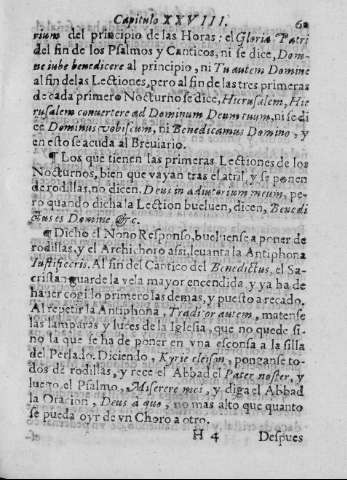 Capitulo XXVIII. 60
rium del principio de las Horas: el Gloria Patri
del fin de los Psalmos y Canticos, ni se dice, Dom-
ne iube benedicere al principio, ni Tu autem Domine
al fin de las Lectiones, pero al fin de las tres primeras
de cada primero Nocturno se dice, Hierusalem, Hie
rusalem conuertere ad Dominum Deum tuum, ni se di
ce Dominus vobiscum, ni Benedicamus Domino, y
en esto se acuda al Breuiario.
¶ Los que tienen las primeras Lectiones de los
Nocturnos, bien que vayan tras el atril, y se ponen
de rodillas, no dicen, Deus in adiutorium meum, pe
ro quando dicha la Lection bueluen, dicen, Benedi
ctus es Domine &c.
¶ Dicho el Nono Responso, bueluense a poner de
rodillas, y el Archichoro assi, leuanta la Antiphona
Iustificeris. Al fin del Cantico del Benedictus, el Sa-
cristan guarde la vela mayor encendida y ya ha de
hauer cogido lo primero las demas, y puesto a recado.
Al repetir la Antiphona, Traditor autem, matense
las lamparas y luces de la Iglesia, que no quede si
no la que se ha de poner en vna esconsa a la silla
del Perlado. Diciendo, Kyrie eleison, ponganse to
dos de rodillas, y rece el Abbad el Pater noster, y
luego el Psalmo, Miserere mei, y diga el Abbad
la Oracion, Deus à quo, no mas alto que quanto
se pueda oyr de vn Choro a otro.
H 4 Despues